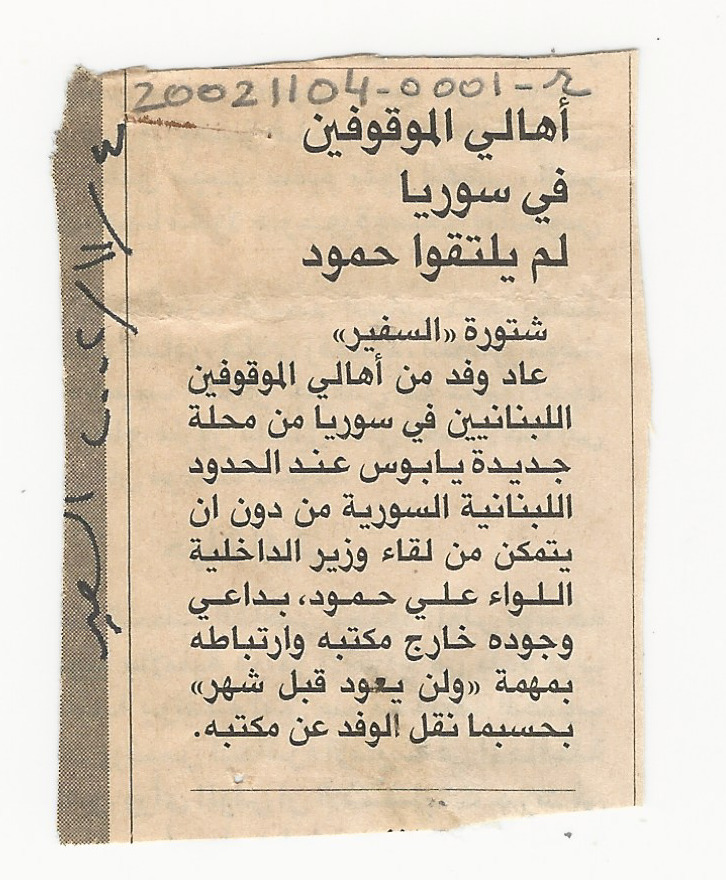 20021104-0001-r
أهالي الموقوفين
في سوريا
لم يلتقوا حمود
شتورة «السفير»
عاد وفد من أهالي الموقوفين
اللبنانيين في سوريا من محلة
جديدة يابوس عند الحدود
اللبنانية السورية من دون ان
يتمكن من لقاء وزير الداخلية
اللواء علي حمود، بداعي
وجوده خارج مكتبه وارتباطه
بمهمة «ولن يعود قبل شهر»
بحسبما نقل الوفد عن مكتبه.
السفير ٢٠٠٢/١١/٤